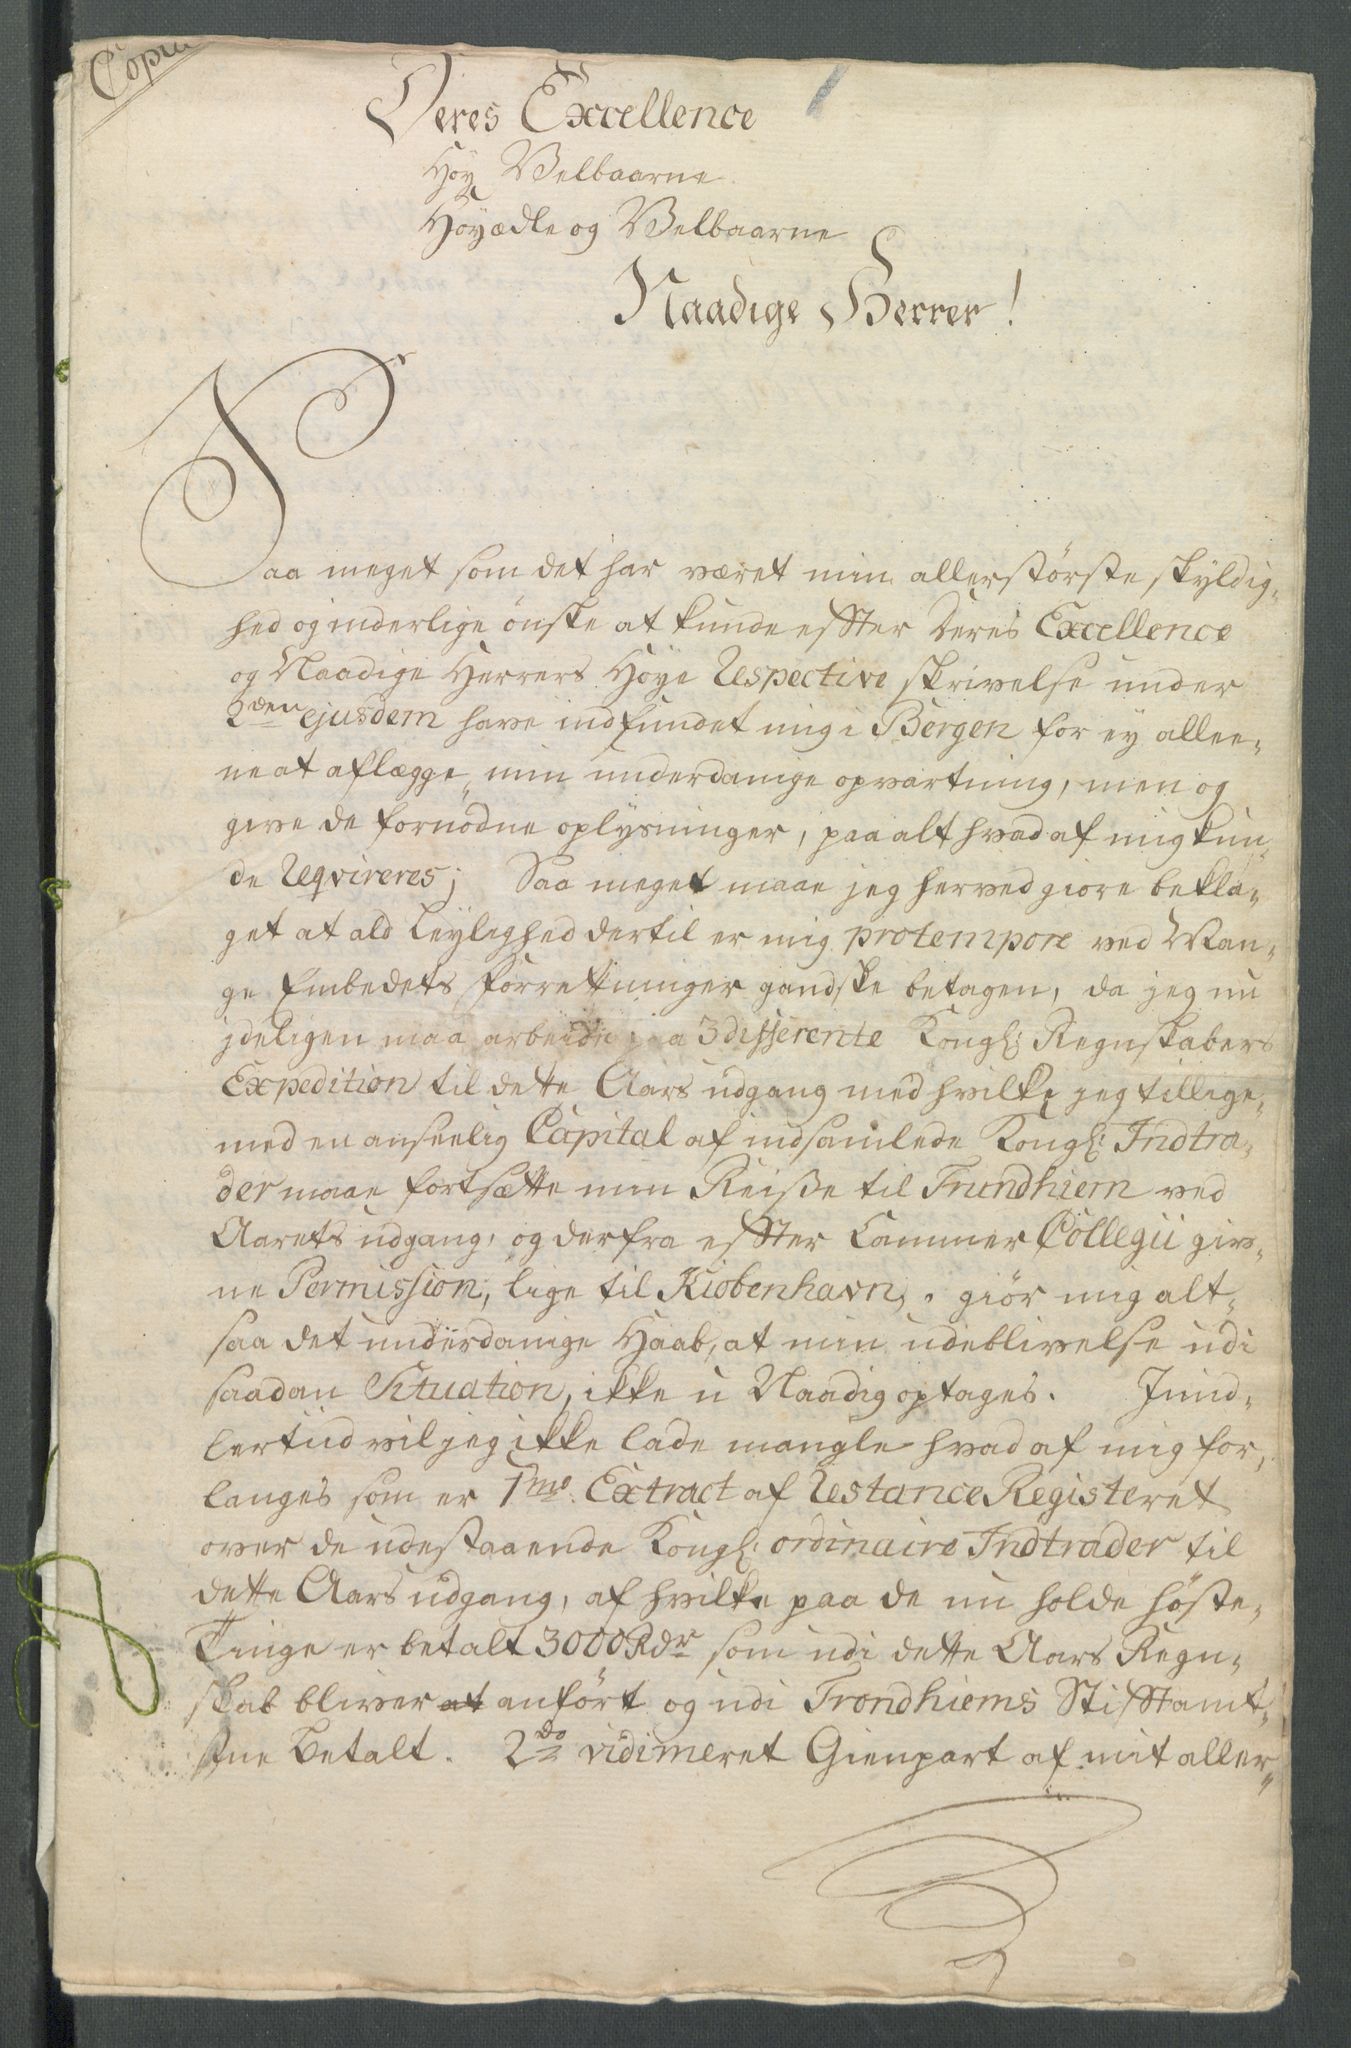 Copia
Deres Excellence
Høy Velbaarne
Høyædle og Velbaarne
Naadige Herrer!
Saa meget som det har været min allerstörste skÿldig-
hed og inderlige önske at kunde effter Deres Excellence
og Naadige Herrers Höye Respective skrivelse under
2den ejusdem have indfundet mig i Bergen for eÿ allee-
ne at aflægge min underdanige opvartning, men og
give de fornödne oplysninger, paa alt hvad af mig kun-
de Reqvireres; Saa meget maae jeg herved giøre bekla-
get at ald Leÿleghed dertil er mig protempore ved Man-
ge Embedets Forrettninger gandske betagen, da jeg nu
jdeligen maa arbeide paa 3 differente Kongl: Regnskabers
Expedition til dette Aars udgang med hvilke jeg tillige-
med en anseelig Capital af indsamlede Kongl: Indtra-
der maae fortsætte min Reise til Trundhiem ved
Aarets udgang, og derfra effter Cammer Collegii giv-
ne Permission, lige til Kiøbenhavn, giør mig alt-
saa det underdanige Haab, at min udeblivelse udi
saadan Situation, ikke u Naadig optages. Imid-
lertiid vil jeg ikke lade mangle hvad af mig for-
langes som er 1mo Extract af Restance Registeret
over de udestaaende Kongl: ordinaire Indtrader til
dette Aars udgang, af hvilke paa de nu holde höste-
Tinge er betalt 3000 Rdr som udi dette Aars Regn-
skab bliver at anfört og udi Trondhiems Stifftamt-
stue betalt. 2do vidimeret Gienpart af mit aller-